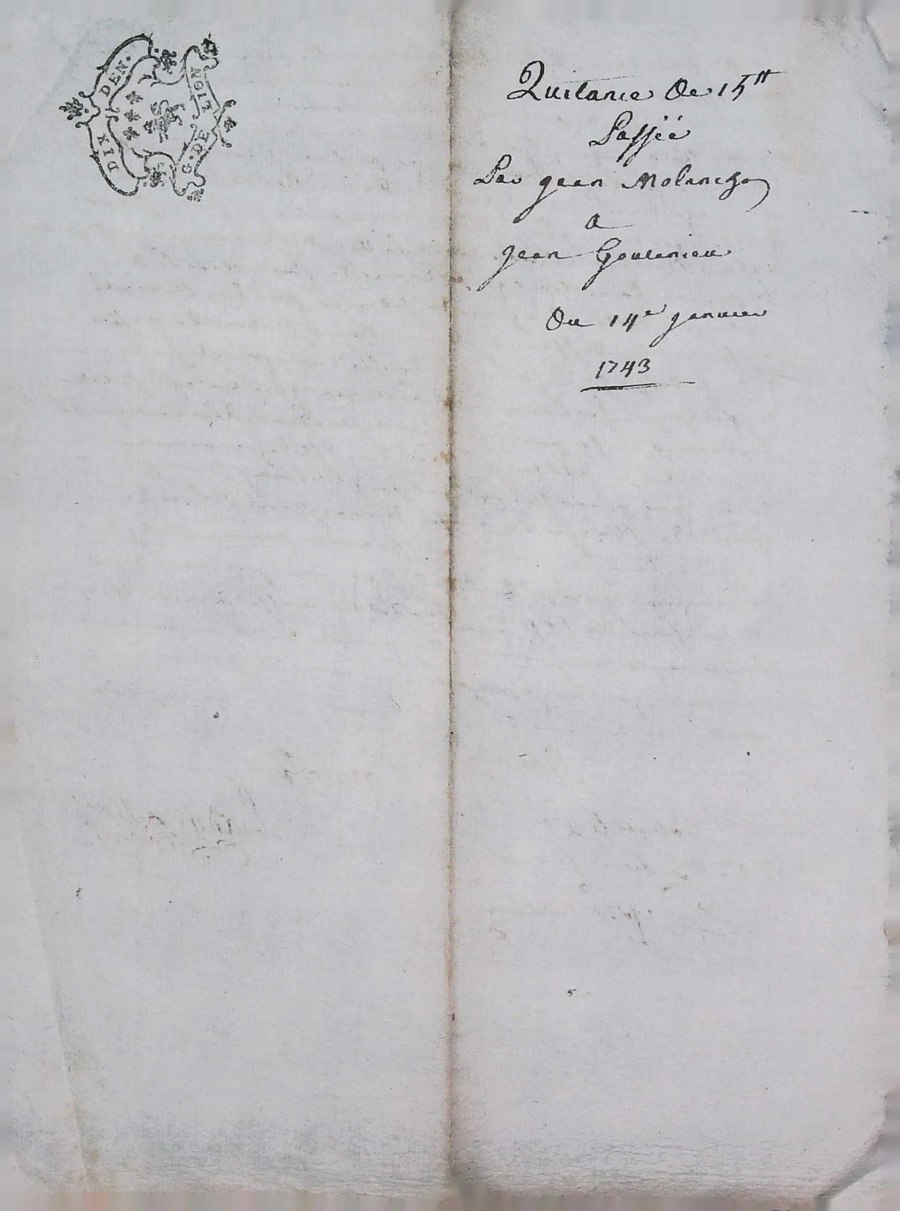 DIX DEN.
G. DE LION
Quitance De 15tt
Passée
Par jean Molanchon
a
jean
Du 14e janvier
1743